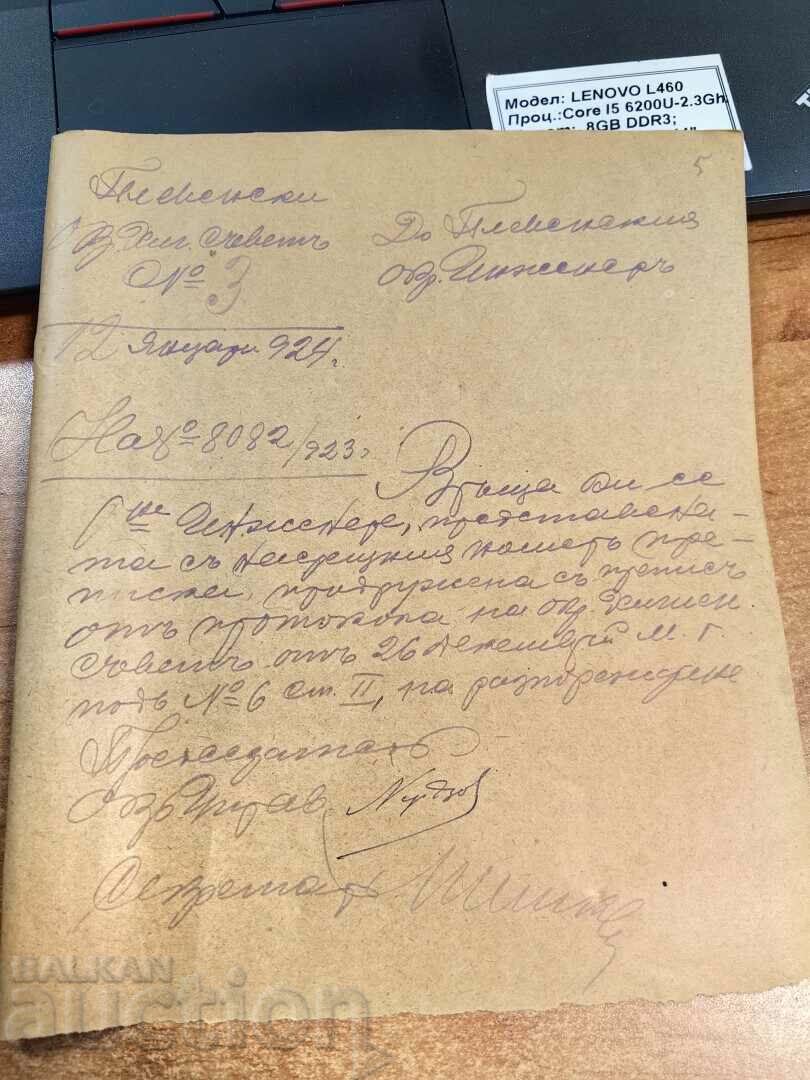 Модел: LENOVO L460
Проц.:Core I5 6200U-2.3Gh
8GB DDR3;
5
Плевенски
Окр. Хиг. Съветъ
№ 3
12 Януари 924 г.
До Плевенския
Окр. Инженеръ
На № 8082/923 г.
Връща Ви се
Г-не Инженере, представена-
та съ насрещния номеръ пре-
писка, придружена съ преписъ
отъ протокола на окр. Хигиен
съветъ отъ 26 Декемврий м. г.
подъ № 6 ст. II, на разпореждане
Председатель
Секретарь
BALKAN
auction